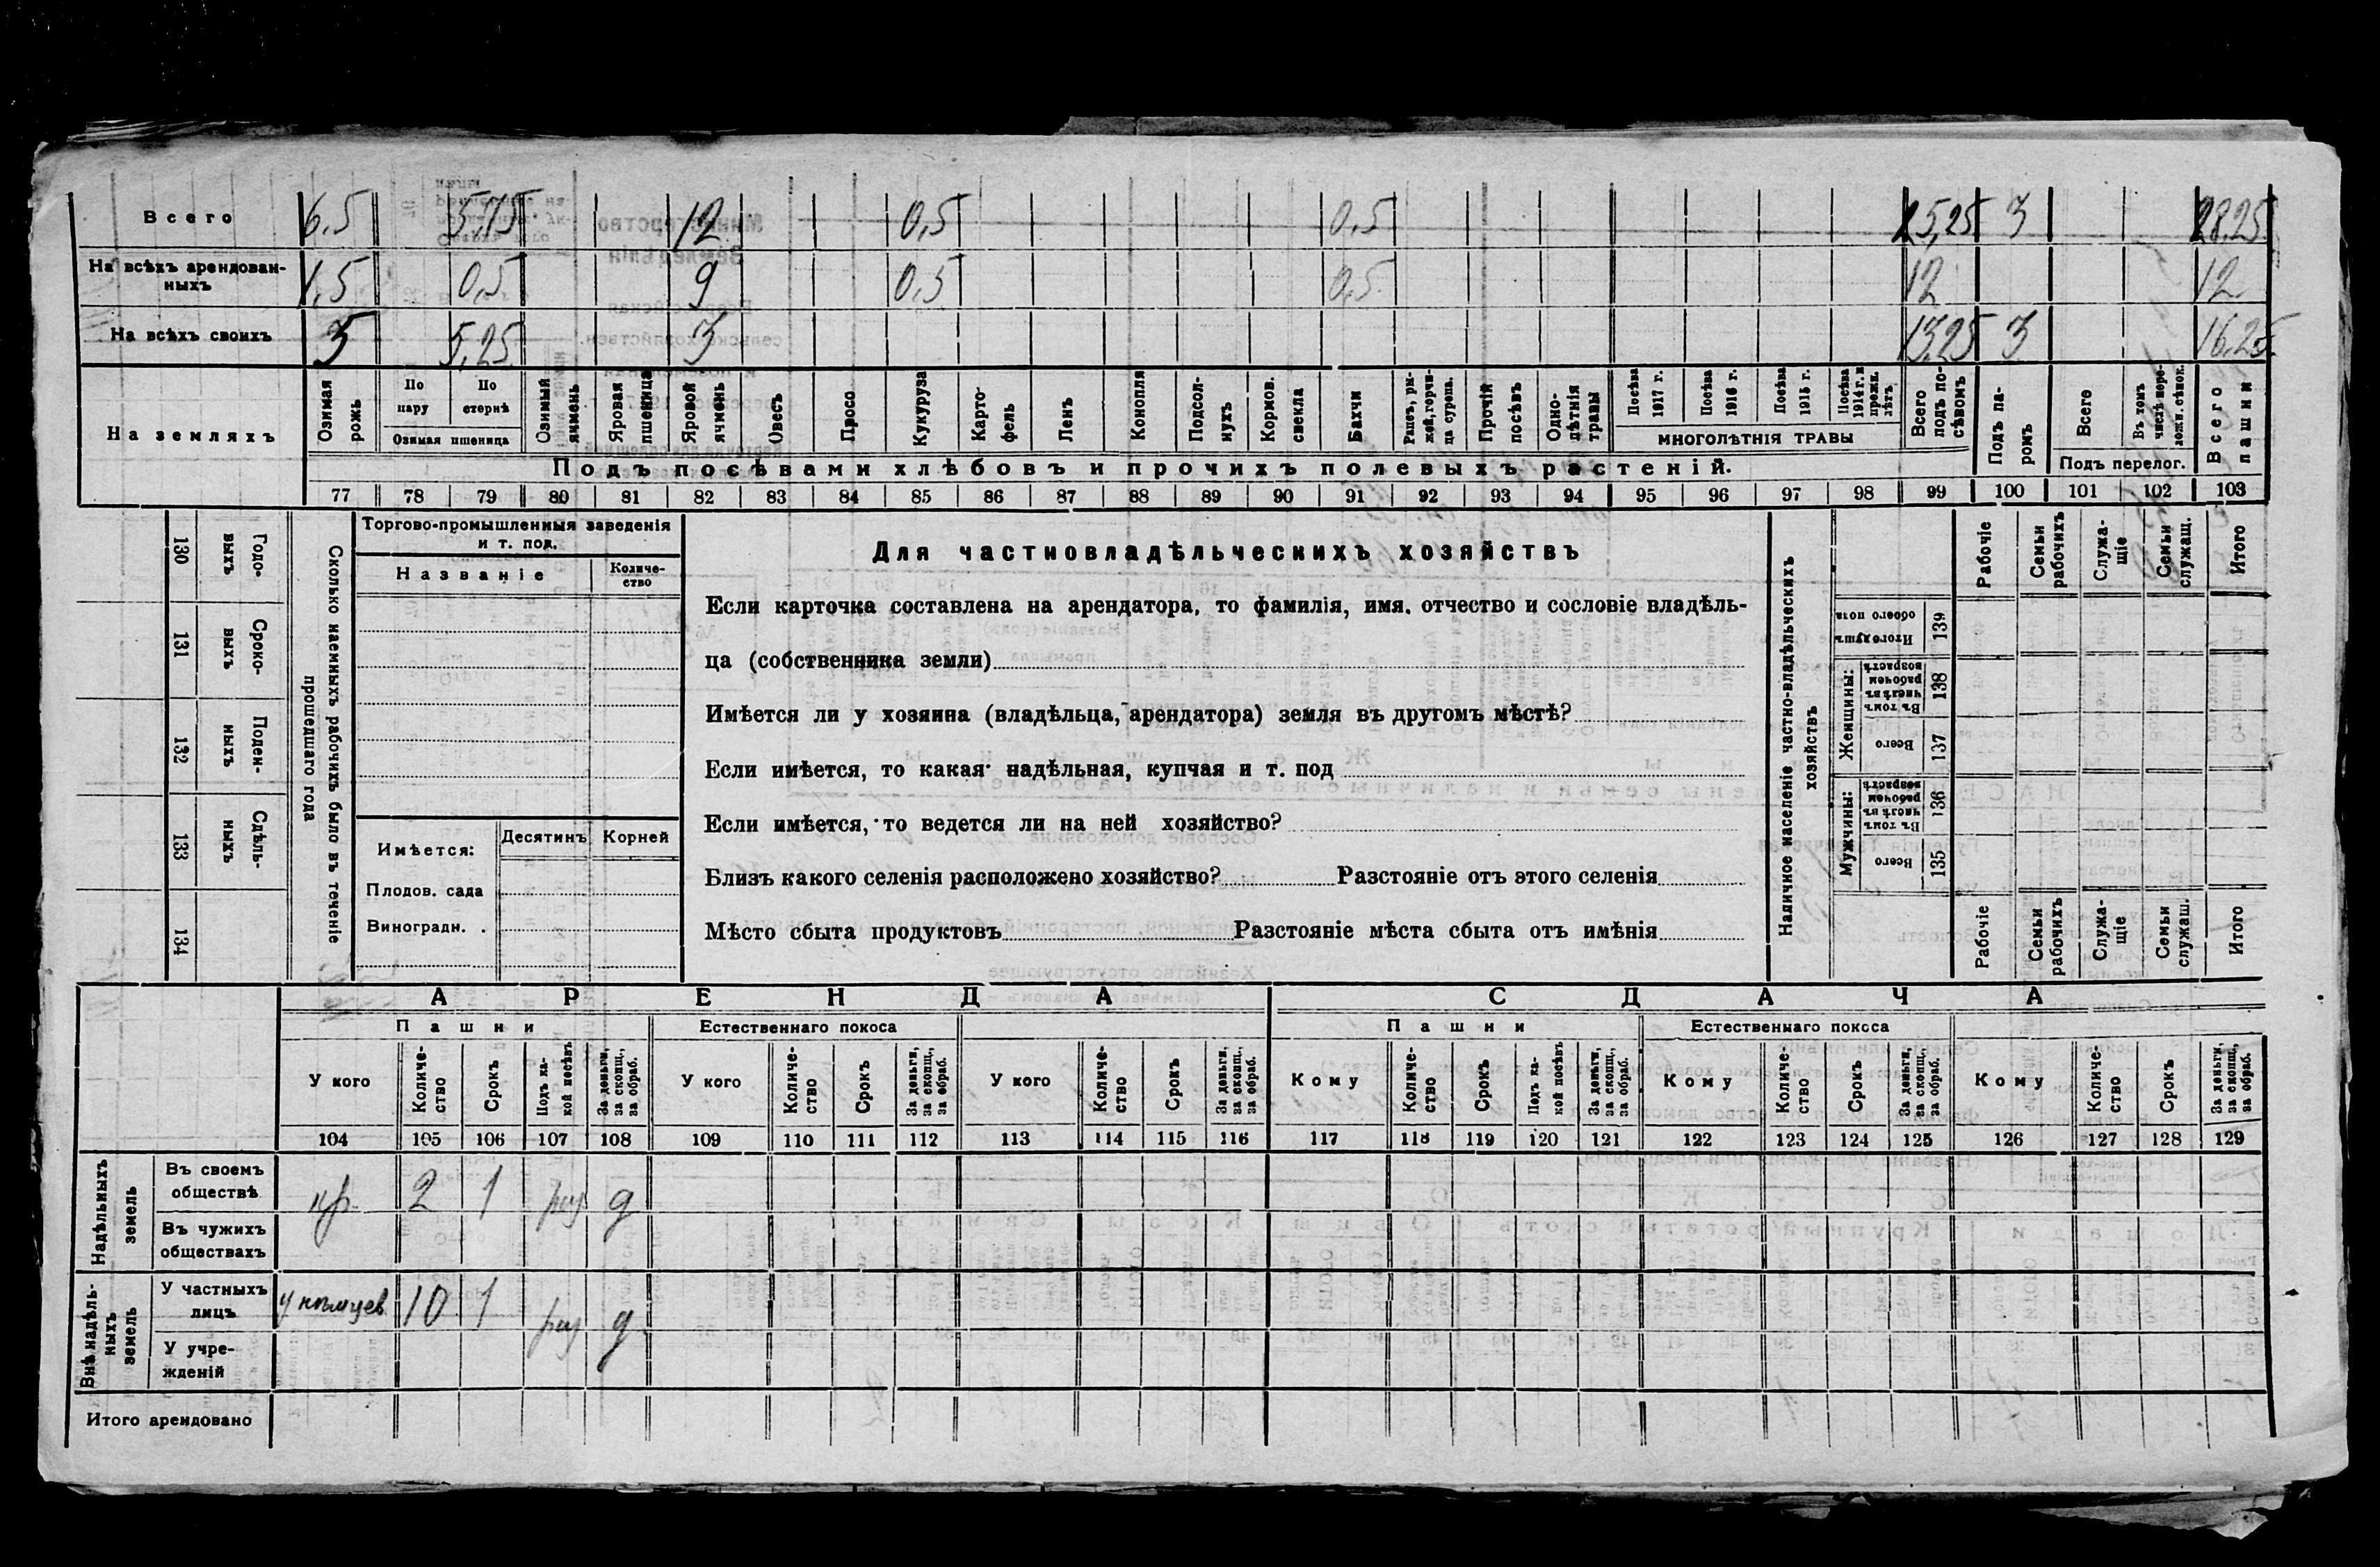 Всего 6,5 5,75 12 0,5 0,5 25,25 3 28.25
На всѣхъ арендован-
ныхъ 1,5 0,5 9 0,5 0,5 12 12
На всѣхъ своихъ 5 5,25 3 13,25 3 16,25
На земляхъ
Озимая рожь
По пару
По стернѣ
Озимая пшеница
Озимый ячмень
Яровая пшеница
Яровой ячмень
Овесъ
Просо
Кукуруза
Карто-
фель
Ленъ
Конопля
Подсол-
нухъ
Кормов.
свекла
Бахчи
Рапсъ, ры-
жей, горчи-
ца сурепа.
Прочій
посѣвъ
Одно-
лѣтнія
травы
Посѣва
1917 г.
Посѣва
1916 г.
Посѣва
1915 г.
Посѣва
1914 г. и
прежн.
лѣтъ
МНОГОЛѢТНІЯ ТРАВЫ
Всего
подъ по-
сѣвомъ
Подъ па-
ромъ
Всего
Въ томъ
числѣ пере-
ложн. сѣнок.
Подъ перелог.
Всего
пашни
Подъ посѣвами хлѣбовъ и прочихъ полевыхъ растеній.
77 78 79 80 81 82 83 84 85 86 87 88 89 90 91 92 93 94 95 96 97 98 99 100 101 102 103
130 Годо-
выхъ
131 Сроко-
выхъ
132 Поден-
ныхъ
133 Сдѣль-
ныхъ
134
Сколько наемныхъ рабочихъ было въ теченіе
прошедшаго года
Торгово-промышленныя заведенія
и т. под.
Названіе
Количе-
ство
Имѣется:
Десятинъ Корней
Плодов. сада
Виноградн. .
Для частновладѣльческихъ хозяйствъ
Если карточка составлена на арендатора, то фамилія, имя, отчество и сословіе владѣль-
ца (собственника земли)
Имѣется ли у хозяина (владѣльца, арендатора) земля въ другомъ мѣстѣ?
Если имѣется, то какая· надѣльная, купчая и т. под
Если имѣется, то ведется ли на ней хозяйство?
Близъ какого селенія расположено хозяйство? Разстояніе отъ этого селенія
Мѣсто сбыта продуктовъ Разстояніе мѣста сбыта отъ имѣнія
Наличное населеніе частно-владѣльческихъ
хозяйствъ
Рабочіе
Семьи
рабочихъ
Служа-
щіе
Семьи
служащ.
Итого
Итого душъ
обоего пола
139
Женщины:
Въ томъ
числѣ въ
рабочемъ
возрастѣ
138
Всего
137
Мужчины:
Въ томъ
числѣ въ
рабочемъ
возрастѣ
136
Всего
135
Рабочіе
Семьи
рабочихъ
Служа-
щіе
Семьи
служащ.
Итого
АРЕНДА СДАЧА
Пашни Естественнаго покоса Пашни Естественнаго покоса
У кого
Количе-
ство
Срокъ
Подъ ка-
кой посѣвъ
За деньги,
за скопщ.,
за обраб.
У кого
Количе-
ство
Срокъ
За деньги,
за скопщ.,
за обраб.
У кого
Количе-
ство
Срокъ
За деньги,
за скопщ.,
за обраб.
Кому
Количе-
ство
Срокъ
Подъ ка-
кой посѣвъ
За деньги,
за скопщ.,
за обраб.
Кому
Количе-
ство
Срокъ
За деньги,
за скопщ.,
за обраб.
Кому
Количе-
ство
Срокъ
За деньги,
за скопщ.,
за обраб.
104 105 106 107 108 109 110 111 112 113 114 115 116 117 118 119 120 121 122 123 124 125 126 127 128 129
Надѣльныхъ
земель
Въ своемъ
обществѣ кр. 2 1 д
Въ чужихъ
обществахъ
Внѣ надѣль-
ныхъ
земель
У частныхъ
лицъ у немцев 10 1 д
У учре-
жденій
Итого арендовано